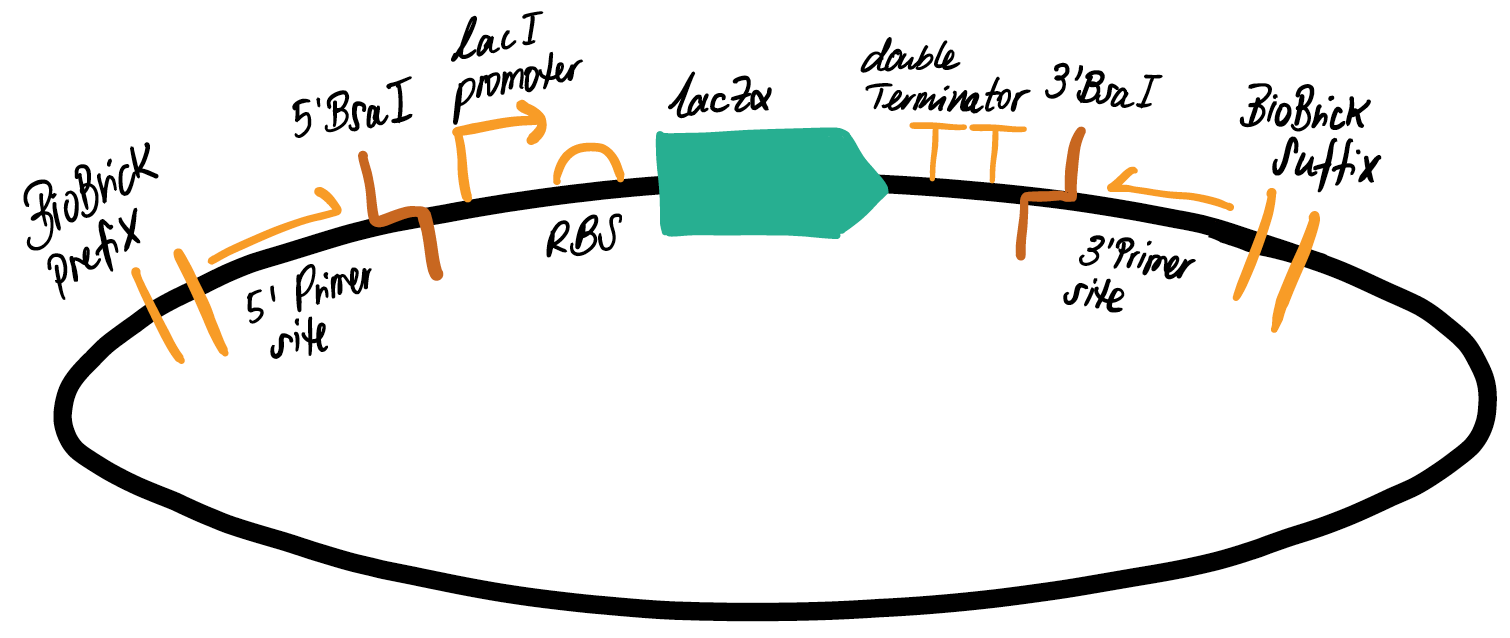 BioBrick
prefix
5' Primer
site
5' BsaI
lacI
promoter
RBS
lacZα
double
Terminator
3' BsaI
3' Primer
site
BioBrick
Suffix